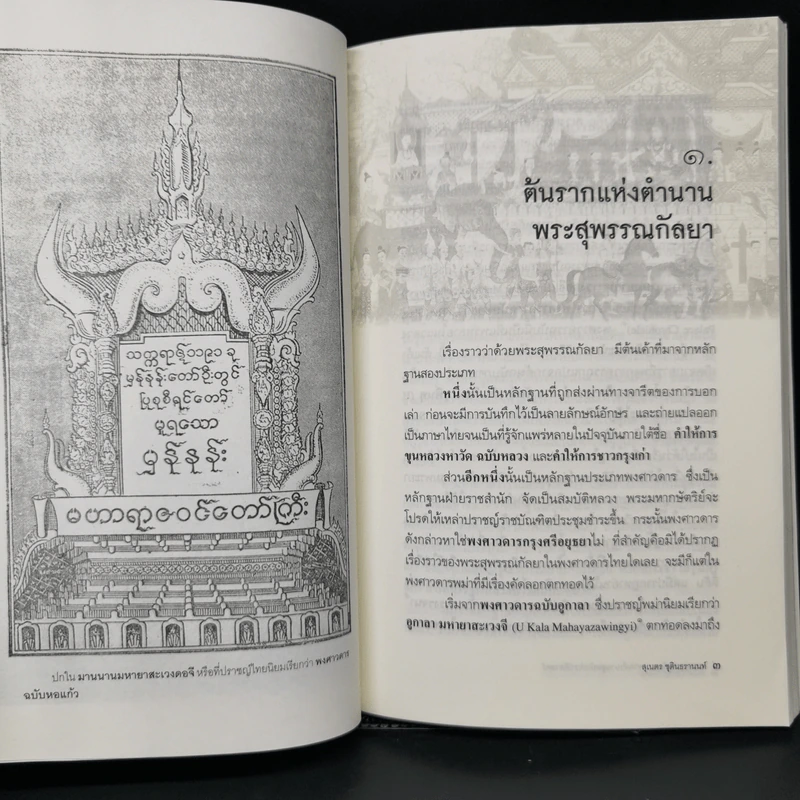 သက္ကရာဇ်၁၁၉၁ ခု
မှန်နန်းတော်ဦးတွင်
ပြုစုစီရင်တော်
မူရသော
မှန်နန်း
မဟာရာဇဝင်တော်ကြီး
ปกใน มานนานมหายาสะเวงดอจี หรือที่ปราชญ์ไทยนิยมเรียกว่า พงศาวดาร
ฉบับหอแก้ว
๑.
ต้นรากแห่งตำนาน
พระสุพรรณกัลยา
เรื่องราวว่าด้วยพระสุพรรณกัลยา มีต้นเค้าที่มาจากหลัก
ฐานสองประเภท
หนึ่งนั้นเป็นหลักฐานที่ถูกส่งผ่านทางจารีตของการบอก
เล่า ก่อนจะมีการบันทึกไว้เป็นลายลักษณ์อักษร และถ่ายแปลออก
เป็นภาษาไทยจนเป็นที่รู้จักแพร่หลายในปัจจุบันภายใต้ชื่อ คำให้การ
ขุนหลวงหาวัด ฉบับหลวง และคำให้การชาวกรุงเก่า
ส่วนอีกหนึ่งนั้นเป็นหลักฐานประเภทพงศาวดาร ซึ่งเป็น
หลักฐานฝ่ายราชสำนัก จัดเป็นสมบัติหลวง พระมหากษัตริย์จะ
โปรดให้เหล่าปราชญ์ราชบัณฑิตประชุมชำระขึ้น กระนั้นพงศาวดาร
ดังกล่าวหาใช่พงศาวดารกรุงศรีอยุธยาไม่ ที่สำคัญคือมิได้ปรากฏ
เรื่องราวของพระสุพรรณกัลยาในพงศาวดารไทยใดเลย จะมีก็แต่ใน
พงศาวดารพม่าที่มีเรื่องคัดลอกตกทอดไว้
เริ่มจากพงศาวดารฉบับอูกาลา ซึ่งปราชญ์พม่านิยมเรียกว่า
อูกาลา มหายาสะเวงจี (U Kala Mahayazawingyi) ตกทอดลงมาถึง
สุเนตร ชุตินธรานนท์ ๓